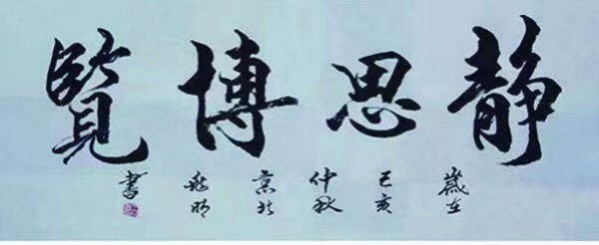 静思博覽
歲在
己亥
仲秋
京於
書